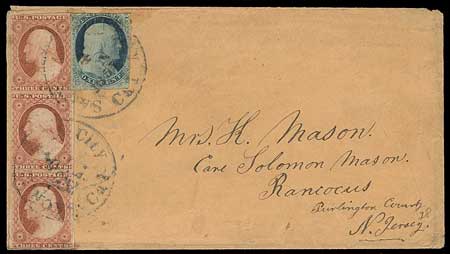 U.S. POSTAGE
THREE CENTS
U.S. POSTAGE
THREE CENTS
U.S. POSTAGE
THREE CENTS
ONE CENT
CITY
CAL.
Mrs. H. Mason.
Care Solomon Mason.
Rancocus
Burlington County
N. Jersey.